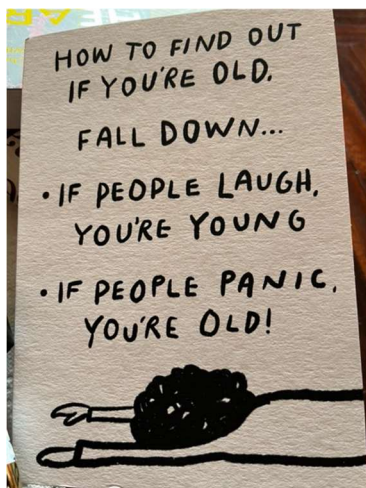 HOW TO FIND OUT
IF YOU'RE OLD.
FALL DOWN...
• IF PEOPLE LAUGH,
YOU'RE YOUNG
• IF PEOPLE PANIC,
YOU'RE OLD!